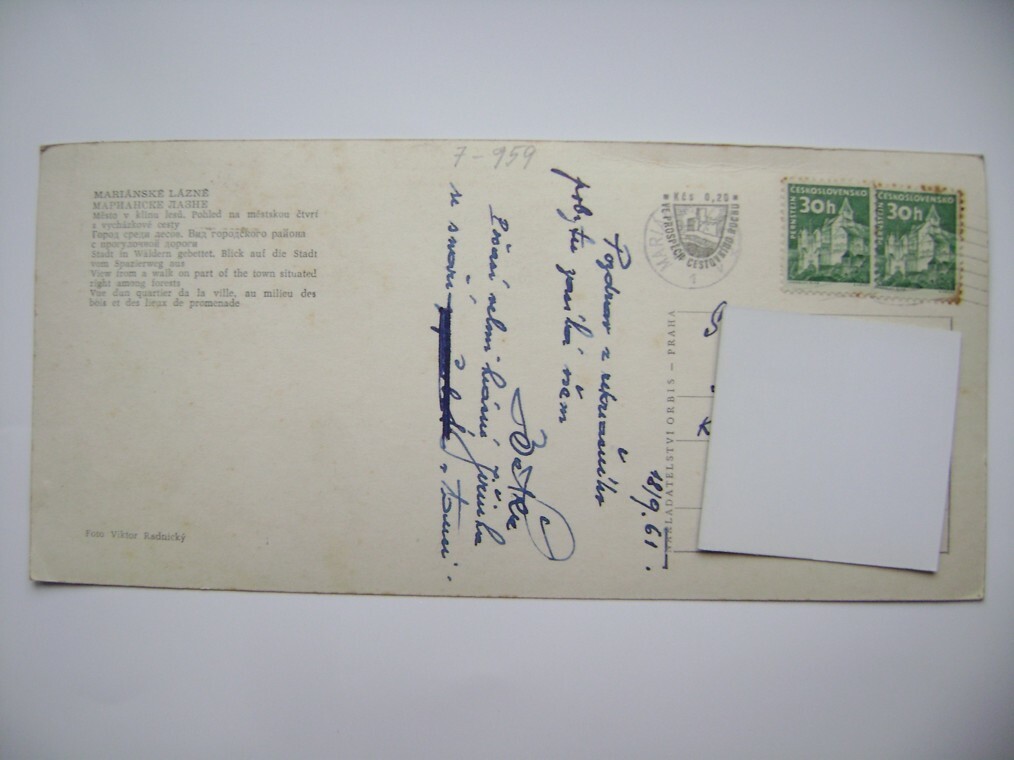 7-959
MARIÁNSKÉ LÁZNĚ
МАРИАНСКЕ ЛАЗНЕ
Město v klínu lesů. Pohled na městskou čtvrť
s vycházkové cesty
Город среди лесов. Вид городского района
с прогулочной дороги
Stadt in Wäldern gebettet. Blick auf die Stadt
vom Spazierweg aus
View from a walk on part of the town situated
right among forests
Vue dun quartier da la ville, au milieu des
bois et des lieux de promenade
Foto Viktor Radnický
18/9. 61.
Pozdrav z rekreačního
pobytu posílá všem
Počasí velmi krásné
se snovu
NAKLADATELSTVÍ ORBIS - PRAHA
Kčs 0,20
VE PROSPĚCH CESTOVNÍHO RUCHU
MARI
1
ČESKOSLOVENSKO
30h
PERNŠTEJN
ČESKOSLOVENSKO
30h
PERNŠTEJN